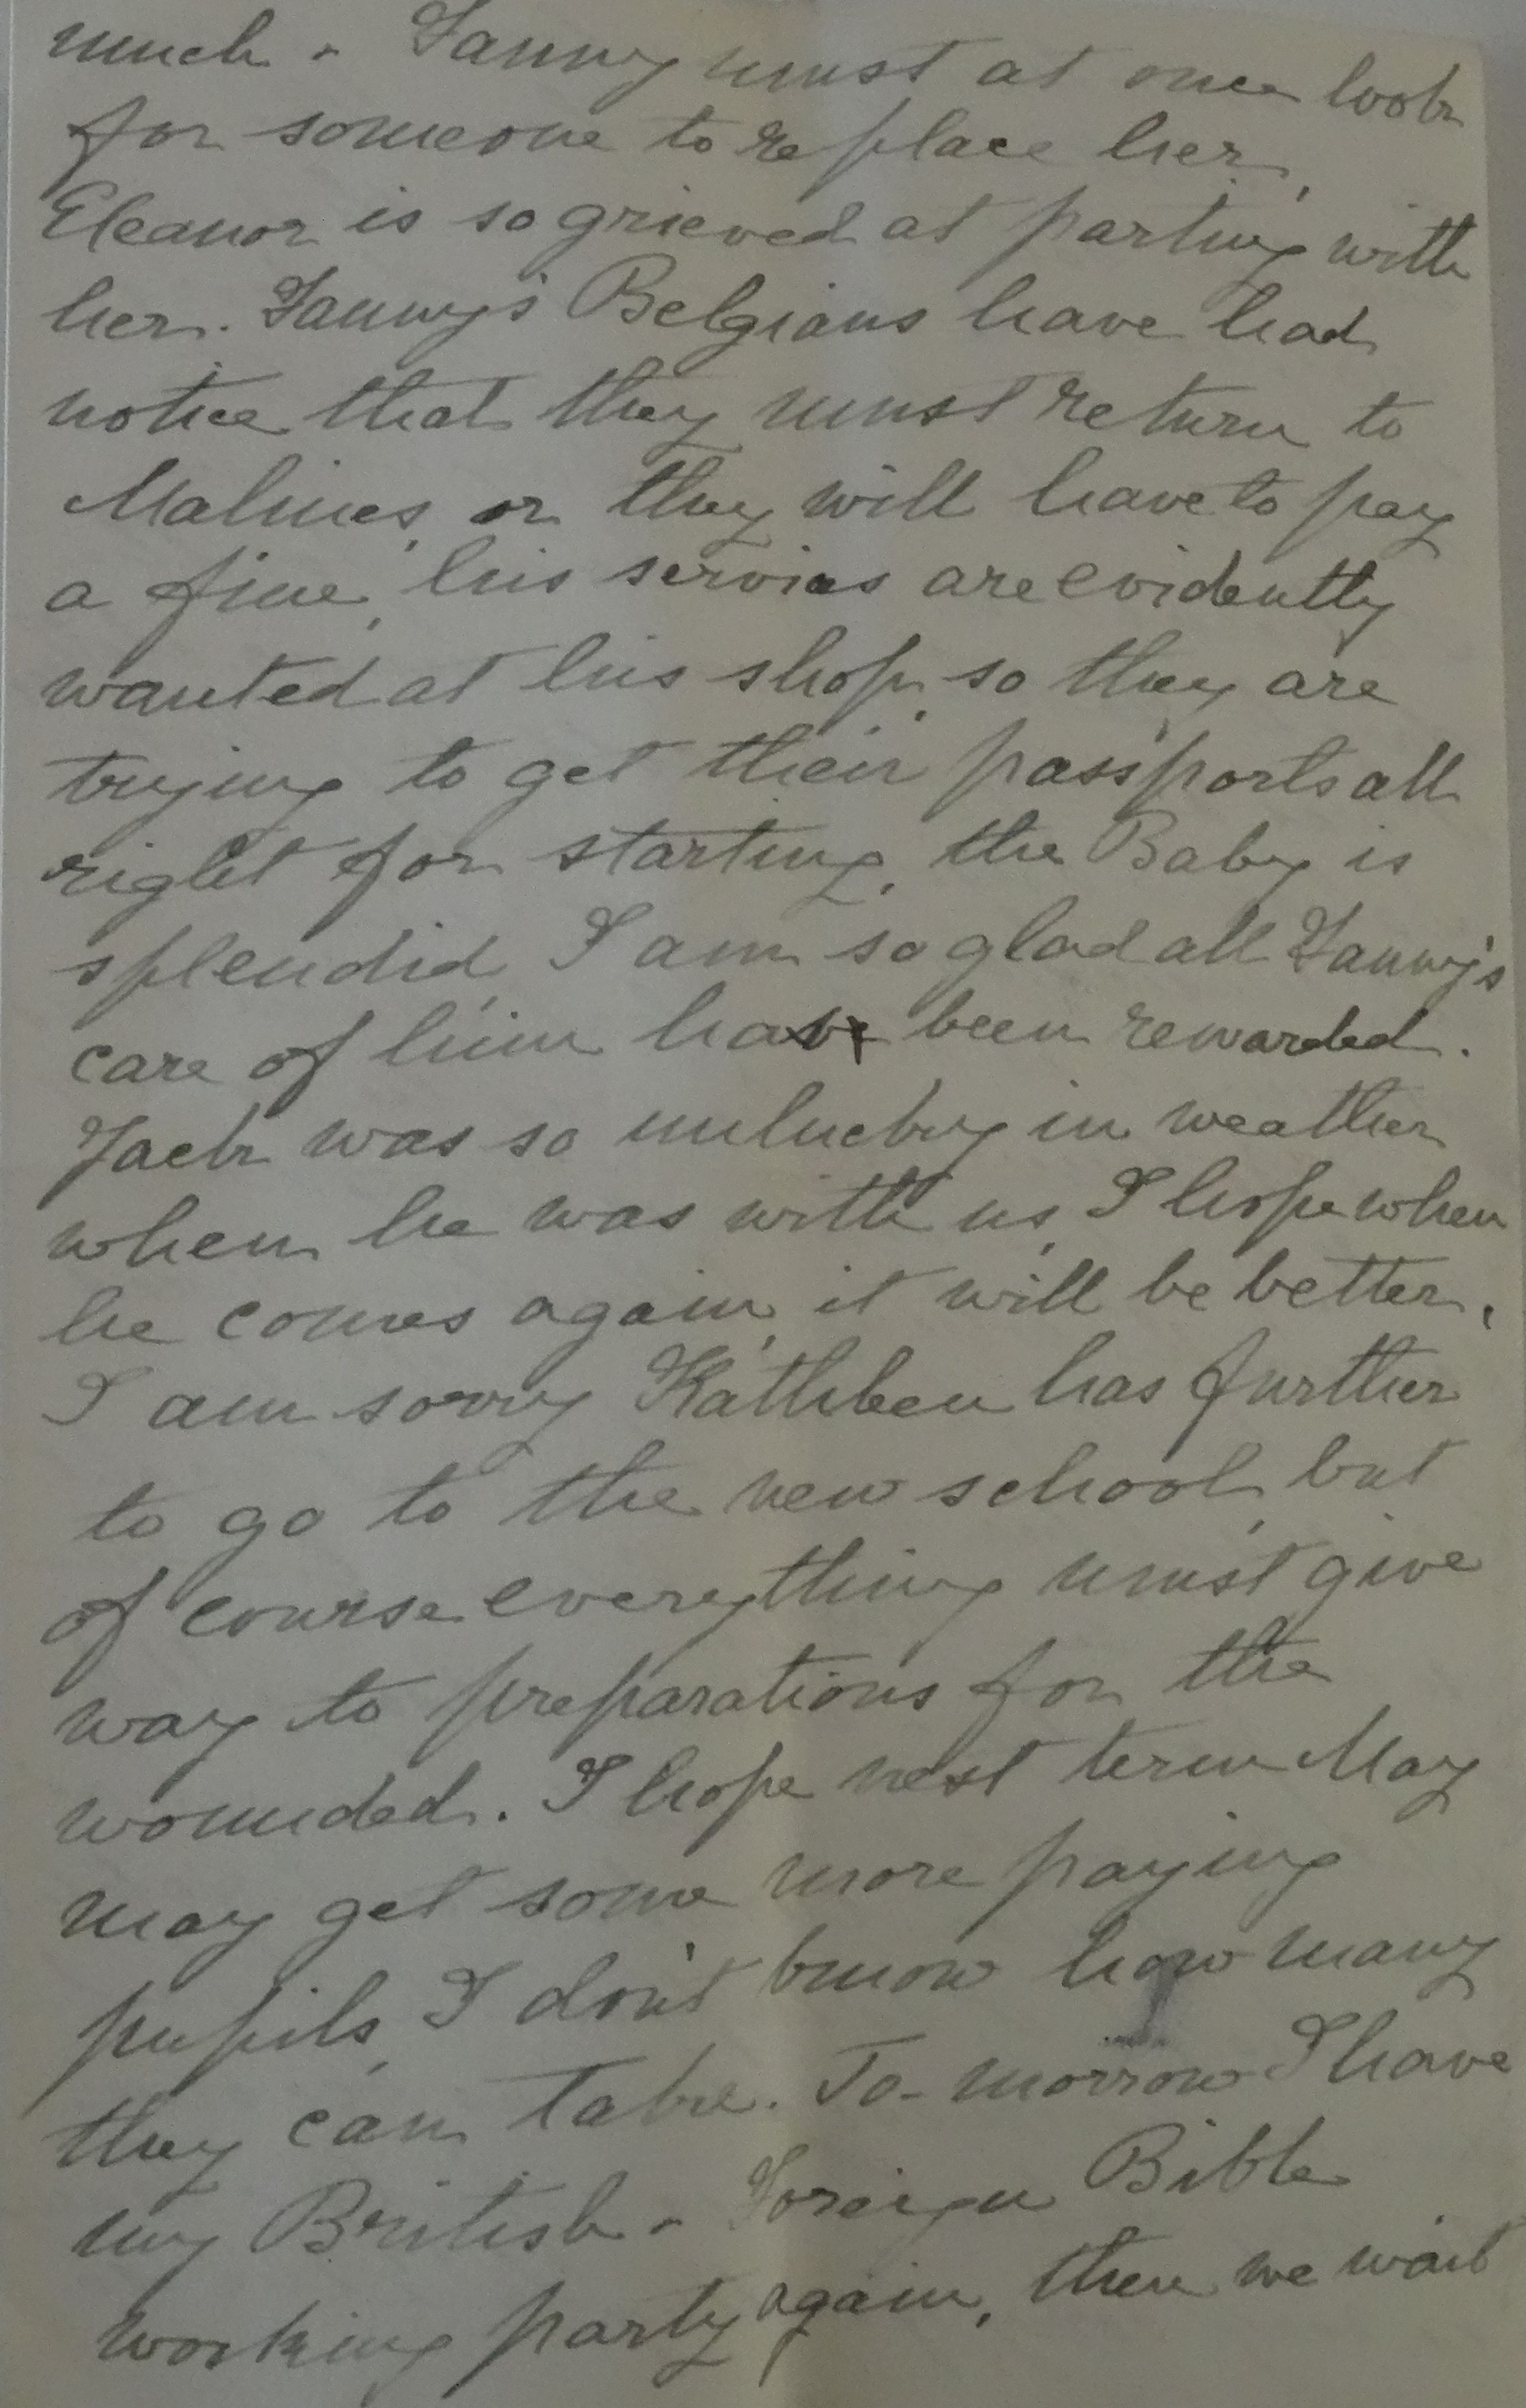 much - Fanny must at once look
for someone to replace her,
Eleanor is so grieved at parting with
her. Fanny's Belgians have had
notice that they must return to
Malines, or they will have to pay
a fine, his services are evidently
wanted at his shop, so they are
trying to get their passports all
right for starting, the Baby is
splendid, I am so glad all Fanny's
care of him have been rewarded.
Jack was so unlucky in weather
when he was with us, I hope when
he comes again, it will be better,
I am sorry Kathleen has further
to go to the new school, but
of course everything must give
way to preparations for the
wounded. I hope next term May
may get some more paying
pupils, I don't know how many
they can take. To-morrow I have
my British - Foreign Bible
working party again, then we wait